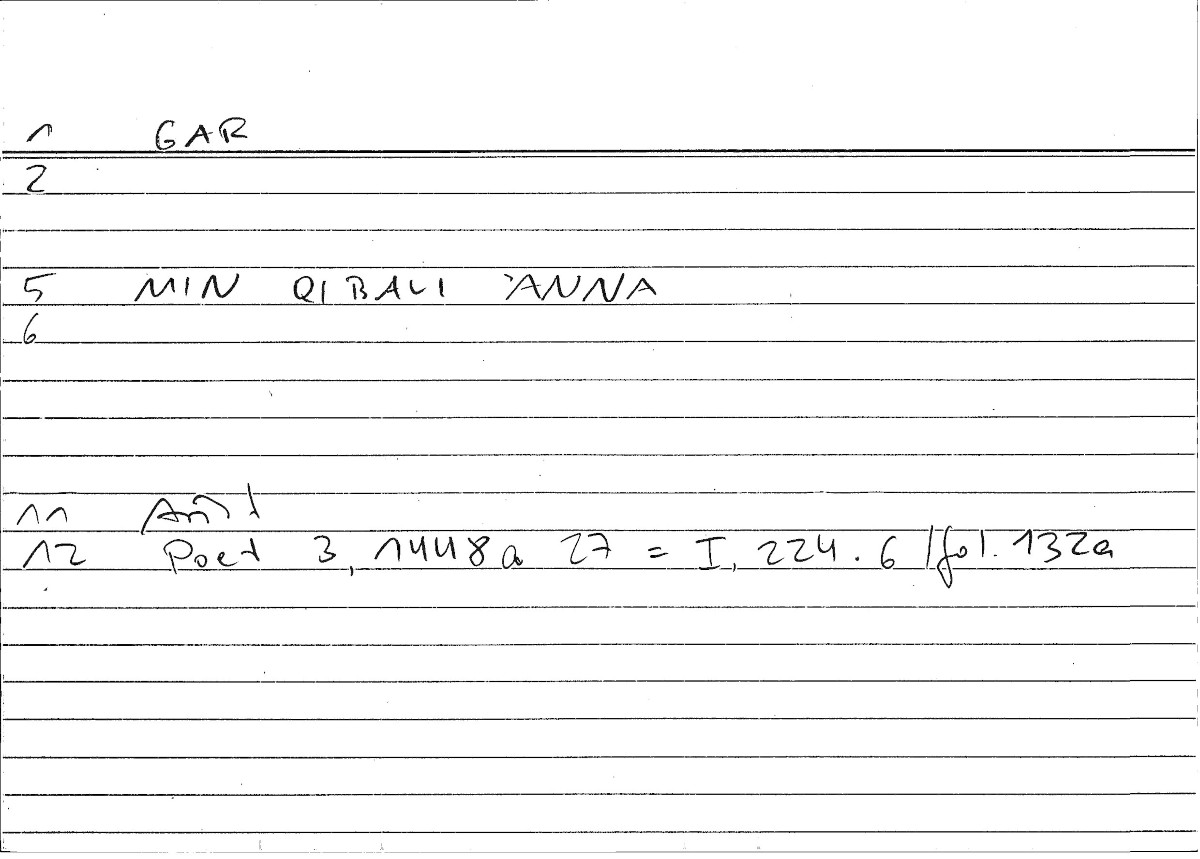 1 GAR
2
5 MIN QIBALI ʾANNA
6
11 Arist
12 Poet 3, 1448a 27 = I, 224.6 / fol. 132a